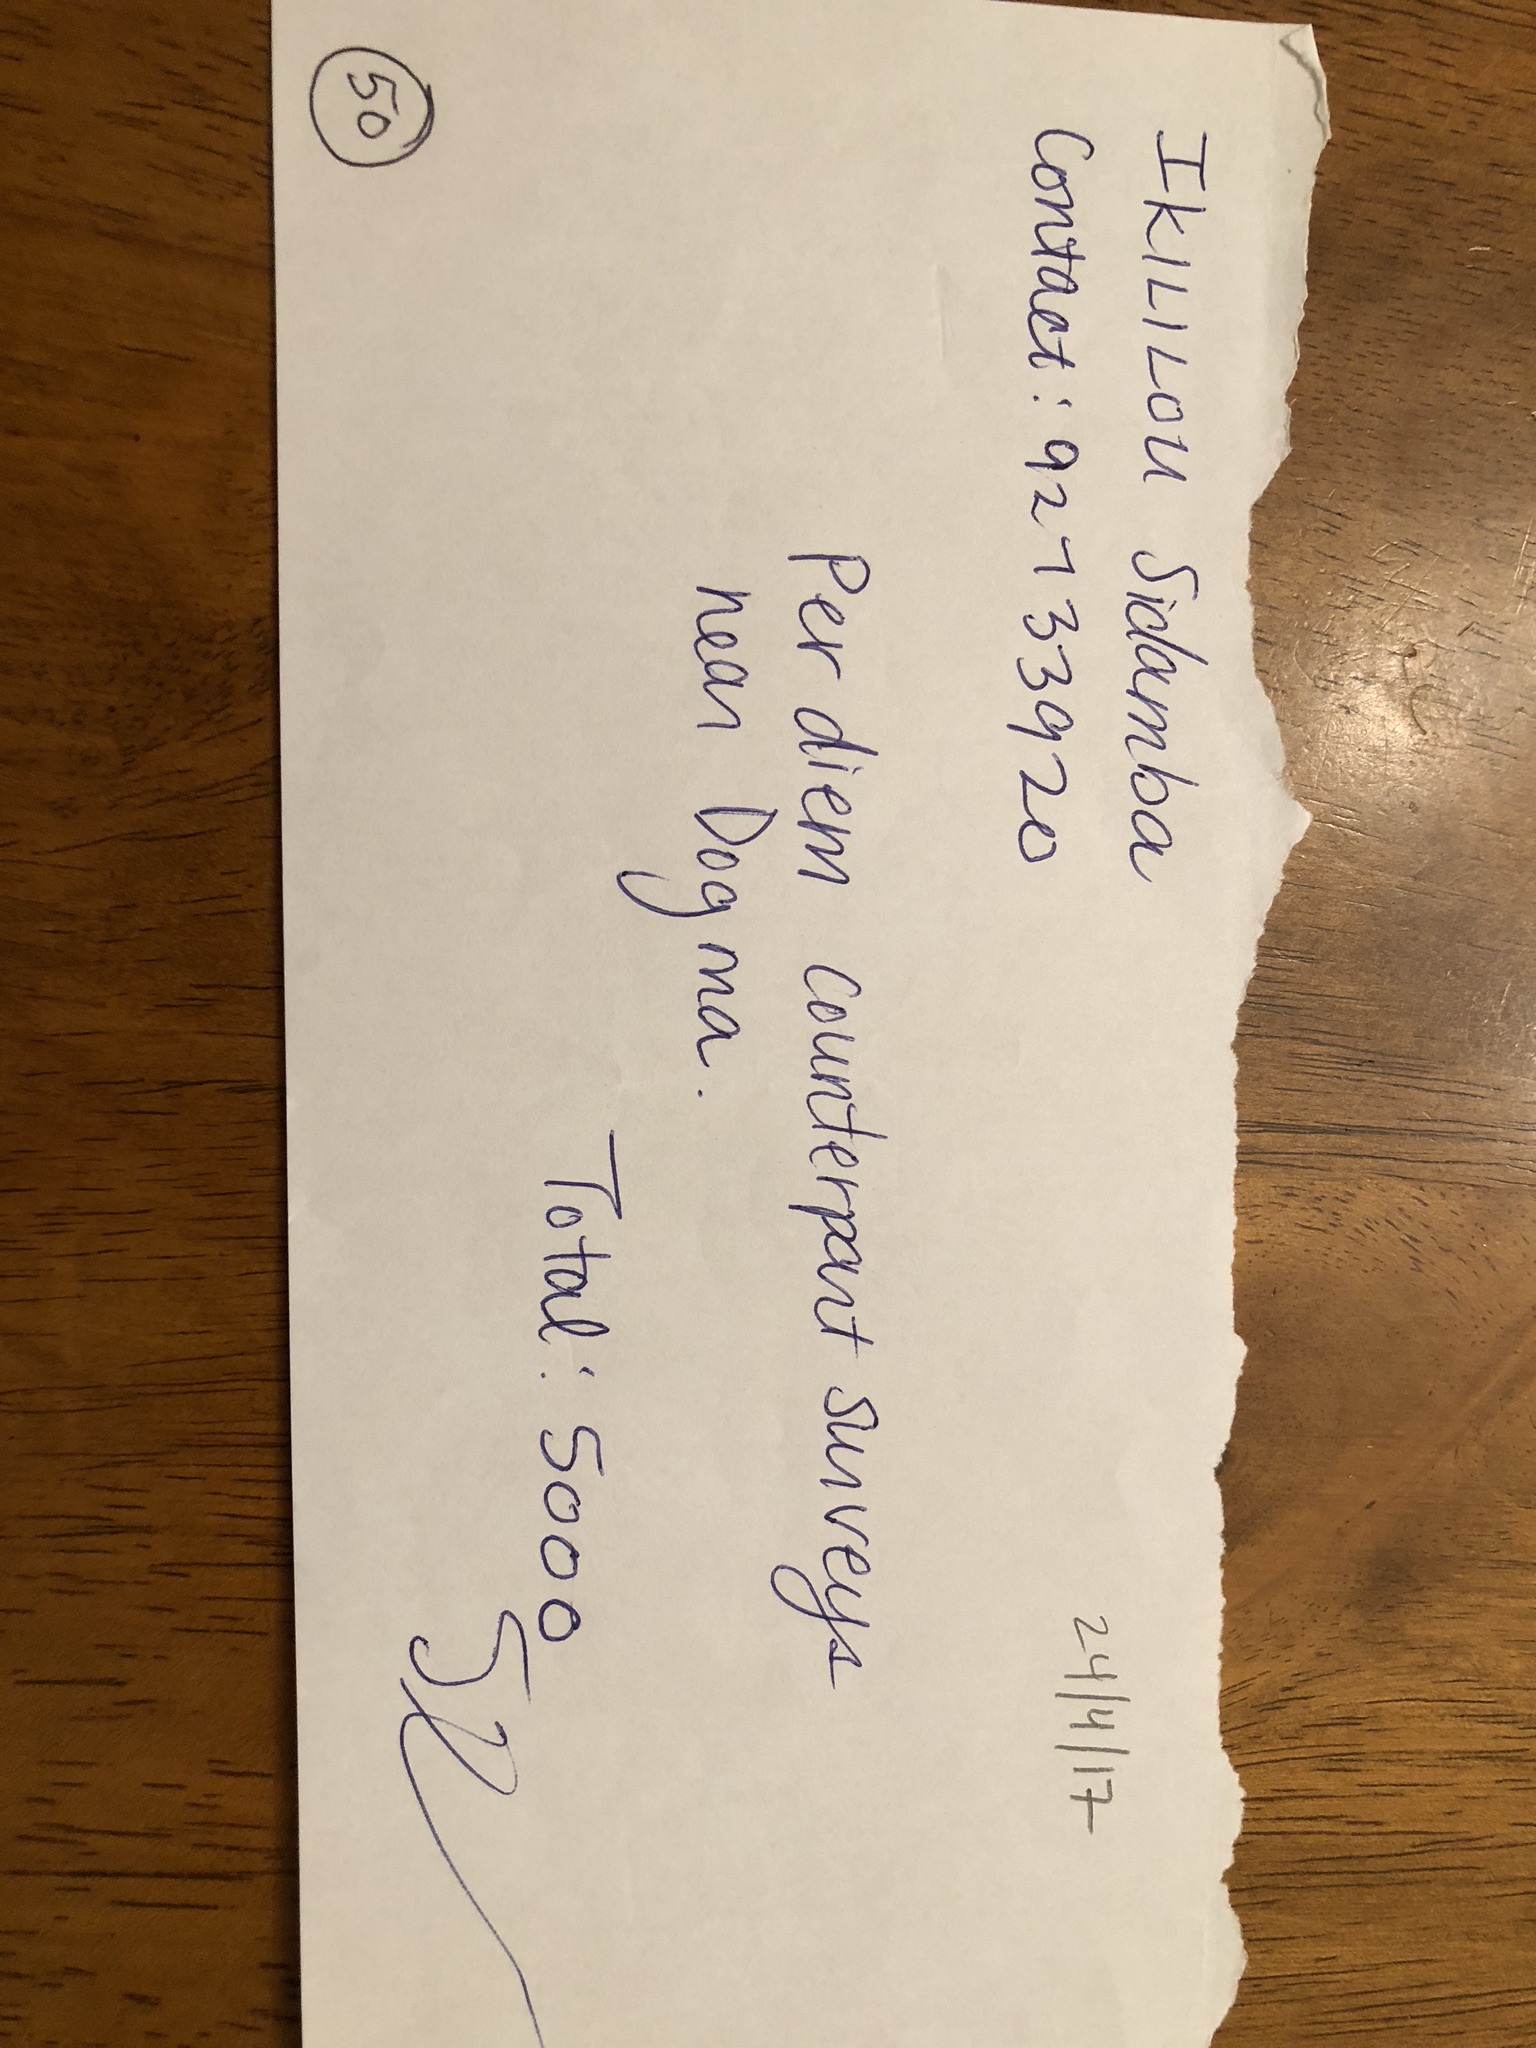 IKILILOU Sidamba
Contact: 92733920
24/4/17
Per diem counterpart surveys
near Dogma.
Total: 5000
50